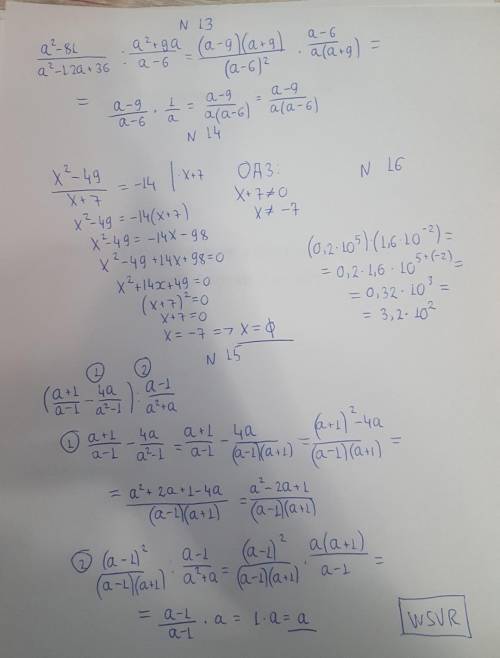 N 13
(a²-81)/(a²-12a+36) : (a²+9a)/(a-6) = ((a-9)(a+9))/(a-6)² · (a-6)/(a(a+9)) =
= (a-9)/(a-6) · 1/a = (a-9)/(a(a-6)) = (a-9)/(a(a-6))
N 14
(x²-49)/(x+7) = -14 | ·x+7
x²-49 = -14(x+7)
x²-49 = -14x-98
x²-49+14x+98=0
x²+14x+49=0
(x+7)²=0
x+7=0
x=-7 => x=ϕ
ОДЗ:
x+7≠0
x≠-7
N 16
(0,2·10⁵)·(1,6·10⁻²)=
= 0,2·1,6·10⁵⁺⁽⁻²⁾ =
= 0,32·10³ =
= 3,2·10²
N 15
① ②
((a+1)/(a-1) - 4a/(a²-1)) : (a-1)/(a²+a)
① (a+1)/(a-1) - 4a/(a²-1) = (a+1)/(a-1) - 4a/((a-1)(a+1)) = ((a+1)²-4a)/((a-1)(a+1)) =
= (a²+2a+1-4a)/((a-1)(a+1)) = (a²-2a+1)/((a-1)(a+1))
② (a-1)²/((a-1)(a+1)) : (a-1)/(a²+a) = (a-1)²/((a-1)(a+1)) · a(a+1)/(a-1) =
= (a-1)/(a-1) · a = 1·a = a
WSVR